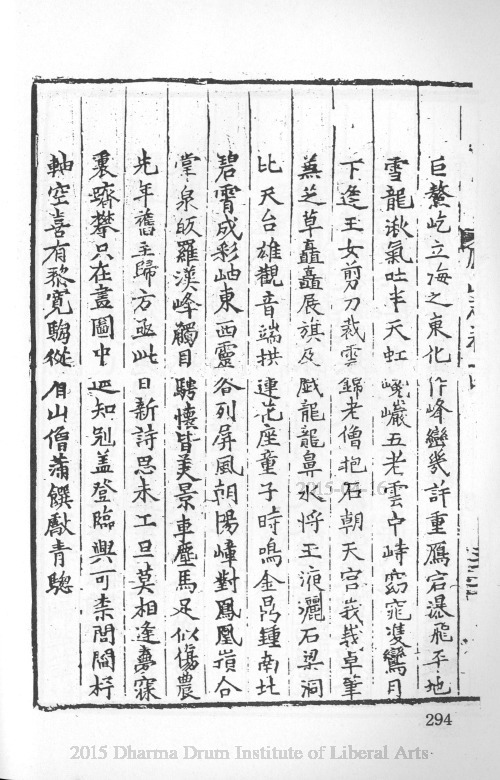 巨鰲屹立海之東化作峰巒幾許重鴈宕瀑飛平地
雪龍湫氣吐半天虹巉巖五老雲中峙窈窕雙鸞月
下逢玉女剪刀裁雲錦老僧抱石朝天宮峩峩卓筆
無芝草矗矗展旗及戲龍龍鼻水將玉液灑石梁洞
比天台雄觀音端拱蓮花座童子時鳴金昺鍾南北
碧霄成彩岫東西靈谷列屏風朝陽嶂對鳳凰嶺合
掌泉皈羅漢峰觸目騁懷皆美景車塵馬足似傷農
先年舊至歸方亟此日新詩思未工旦莫相逢夢寐
裏躋攀只在畫圖中 知別盖登臨興可柰閭閻杼
軸空喜有黎寬騶從 山僧蒲饌獻青騘
294
2015-03-16
2015 Dharma Drum Institute of Liberal Arts